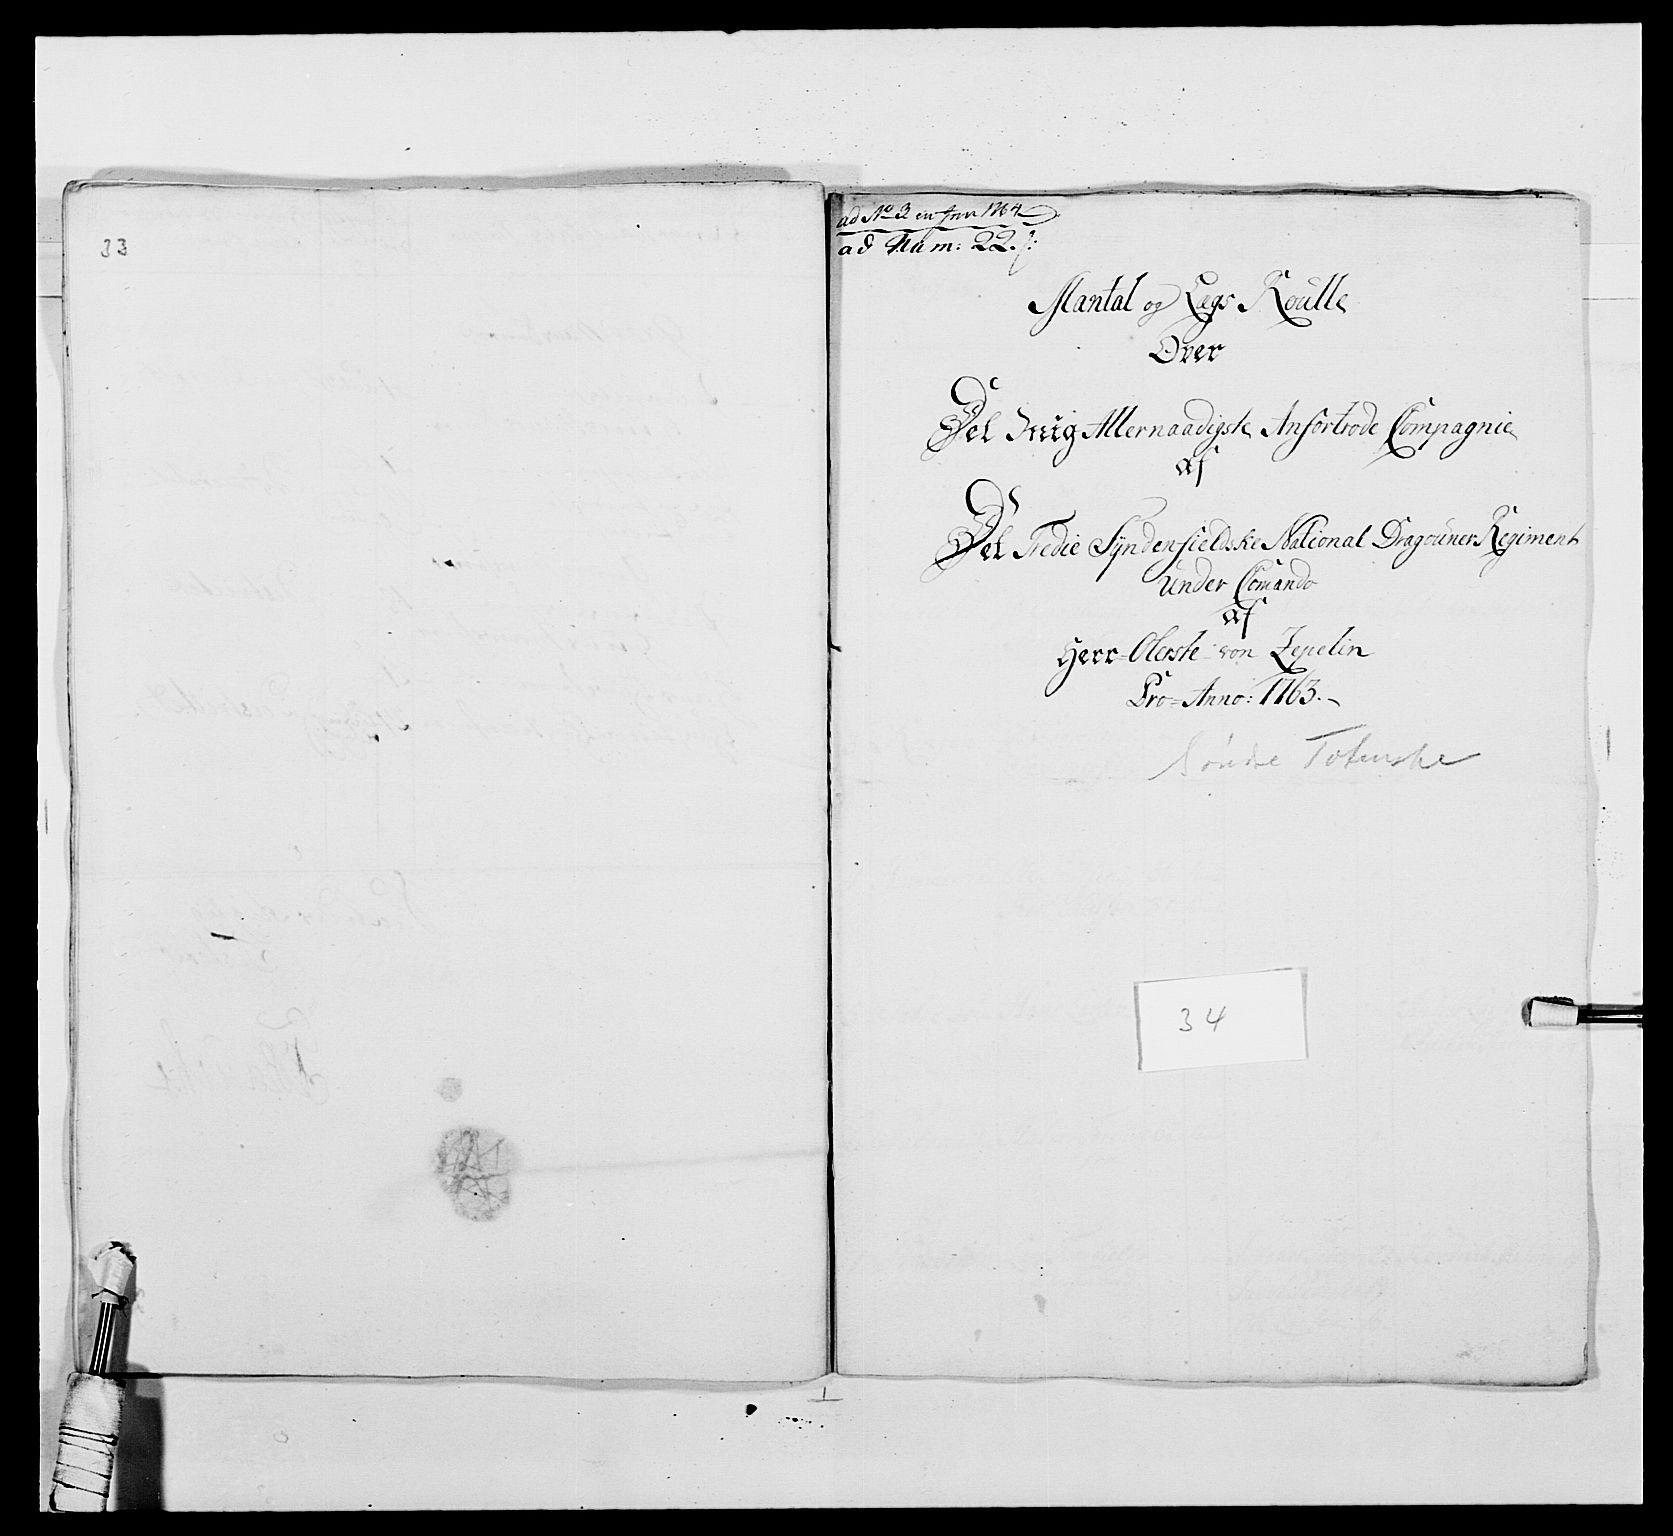 33
ad No 3 en Janr 1764
ad Num: 22.
Mantal og Lægs Roulle
Over
Det Mig Allernaadigste Anfortrode Compagnie
af
Det Tredie Syndenfieldske National Dragouner Regiment
under Comando
af
Herr Oberste von Zepelin
Pro Anno: 1763.
Søndre Totenske
34